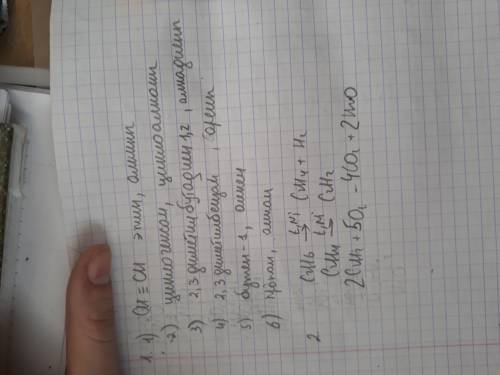 1. 1) CH ≡ CH этин, алкин
2) циклогексан, циклоалкан
3) 2,3 диметилбутадиен 1,2, алкадиен
4) 2,3 диметилбензол, арен
5) бутен-1, алкен
6) пропан, алкан
2 C2H6 t,Ni → C2H4 + H2
C2H4 t,Ni → C2H2
2C2H2 + 5O2 - 4CO2 + 2H2O